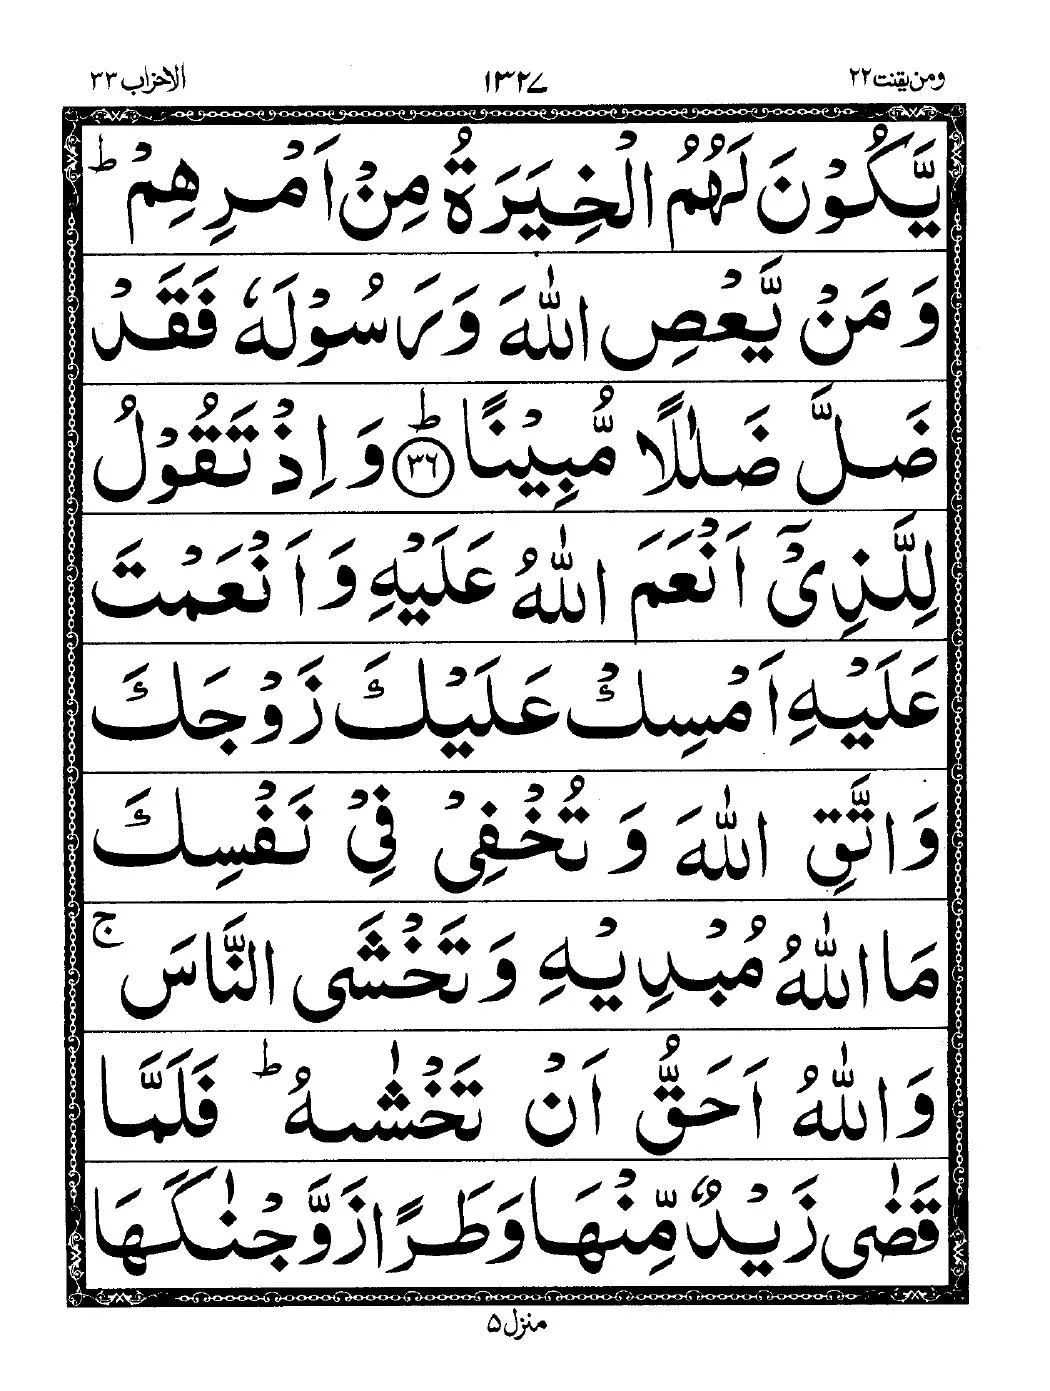 ومن یقنت ۲۲ ۱۳۲۷ الاحزاب ۳۳
يَّكُوْنَ لَهُمُ الْخِيَرَةُ مِنْ اَمْرِهِمْ ؕ
وَ مَنْ يَّعْصِ اللّٰهَ وَ رَسُوْلَهٗ فَقَدْ
ضَلَّ ضَلٰلًا مُّبِيْنًا ؕ ۳۶ وَ اِذْ تَقُوْلُ
لِلَّذِيْۤ اَنْعَمَ اللّٰهُ عَلَيْهِ وَ اَنْعَمْتَ
عَلَيْهِ اَمْسِكْ عَلَيْكَ زَوْجَكَ
وَ اتَّقِ اللّٰهَ وَ تُخْفِيْ فِيْ نَفْسِكَ
مَا اللّٰهُ مُبْدِيْهِ وَ تَخْشَى النَّاسَ ۚ
وَ اللّٰهُ اَحَقُّ اَنْ تَخْشٰىهُ ؕ فَلَمَّا
قَضٰى زَيْدٌ مِّنْهَا وَطَرًا زَوَّجْنٰكَهَا
منزل ۵